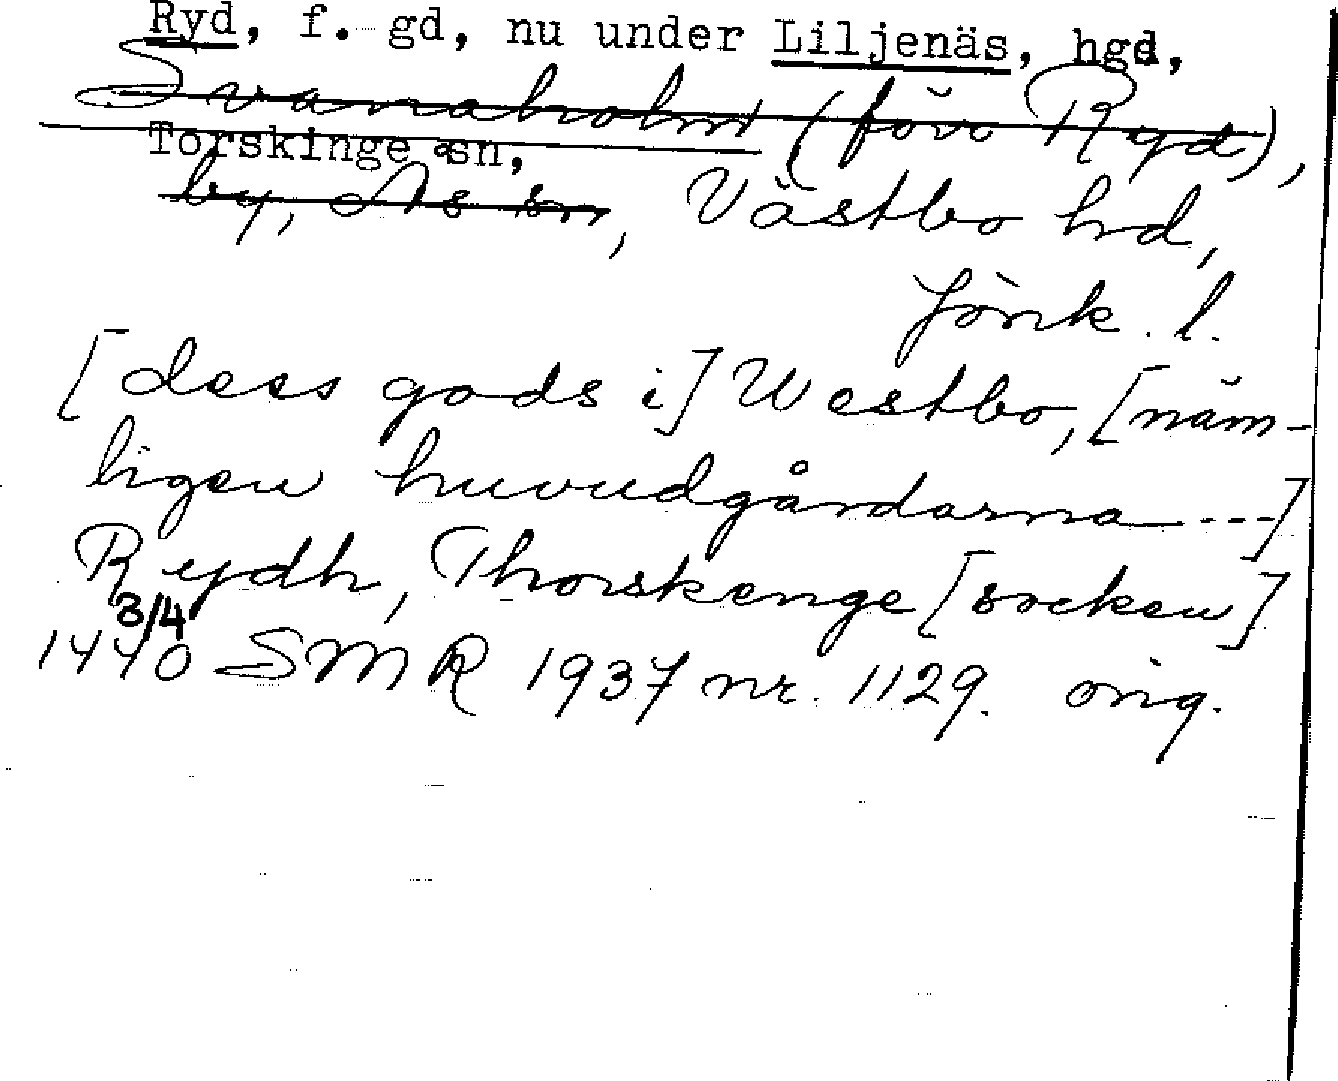 Ryd, f. gd, nu under Liljenäs, hgd,
Svanaholm (förr Ryd),
Torskinge sn,
by, Ås sn, Västbo hd,
Jönk. l.
[dess gods i] Westbo, [näm-
ligen huvudgårdarna ---]
Rydh, Thorskenge [socken]
3/4
1440 SMR 1937 nr. 1129. orig.